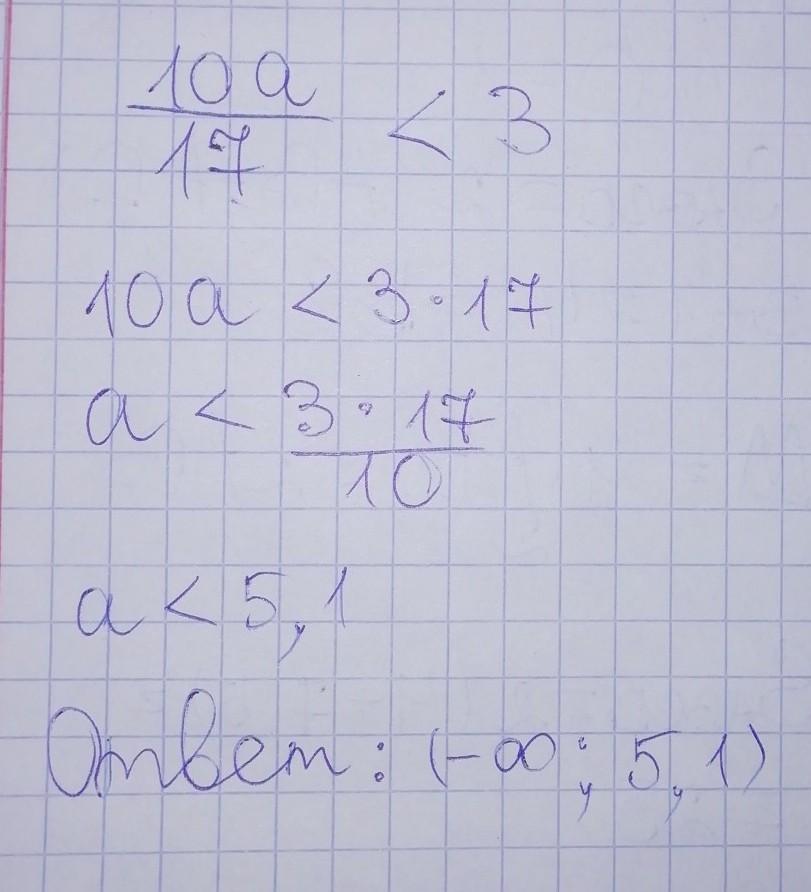 10a
17 < 3
10a < 3 · 17
a < 3 · 17
10
a < 5,1
Ответ: (-∞; 5,1)